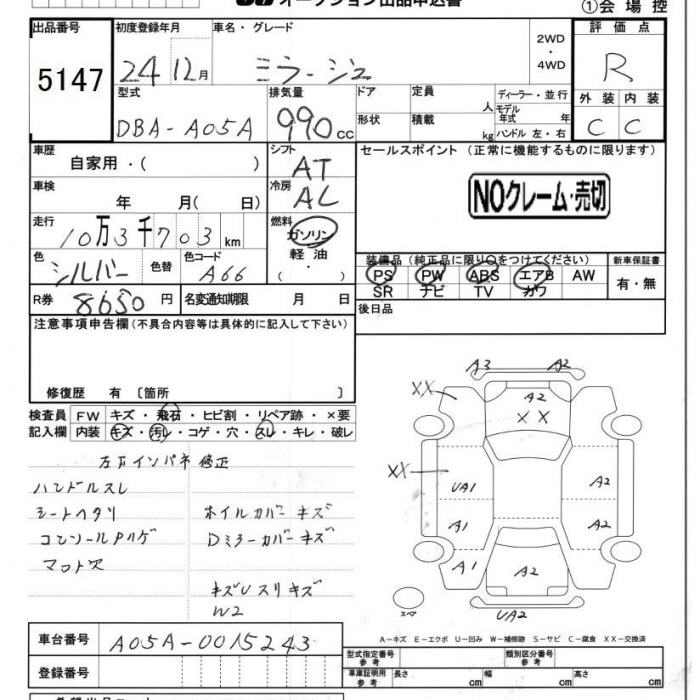 オークション出品申込書
①会場控
出品番号 初度登録年月 車名・グレード 評価点
5147 24 12月 ミラージュ 2WD ・ 4WD R
型式 排気量 ドア 定員 人 ディーラー・並行 外装 内装
DBA-A05A 990cc 形状 積載 kg モデル年式 年 ハンドル 左・右 C C
車歴 シフト セールスポイント (正常に機能するものに限ります)
自家用・( ) AT
車検 冷房 NOクレーム・売切
年 月( 日) AL
走行 燃料
10万3千703km ガソリン
色 色替 色コード 軽油 装備品 (純正品に限り○をつけてください) 新車保証書
シルバー A66 ・ PS PW ABS エアB AW 有・無
SR ナビ TV カワ
R券 8650円 名変通知期限 月 日 後日品
注意事項申告欄(不具合内容等は具体的に記入して下さい)
修復歴 有 〔箇所 〕
検査員 FW キズ・飛石・ヒビ割・リペア跡・×要
記入欄 内装 キズ・汚レ・コゲ・穴・スレ・キレ・破レ
左右インパネ修正
ハンドルスレ
シートヘタリ ホイルカバーキズ
コンソールPハゲ Dミラーカバーキズ
マット欠
キズUスリキズ
W2
A3 A2
XX A2
X X
XX
UA1 A2
A1 A2
A1 A2
スペア UA2
A-キズ E-エクボ U-凹み W-補修跡 S-サビ C-腐食 XX-交換済
車台番号 A05A-0015243
型式指定番号 参考 類別区分番号 参考
登録番号 車庫証明用 参考 長さ cm 幅 cm 高さ cm